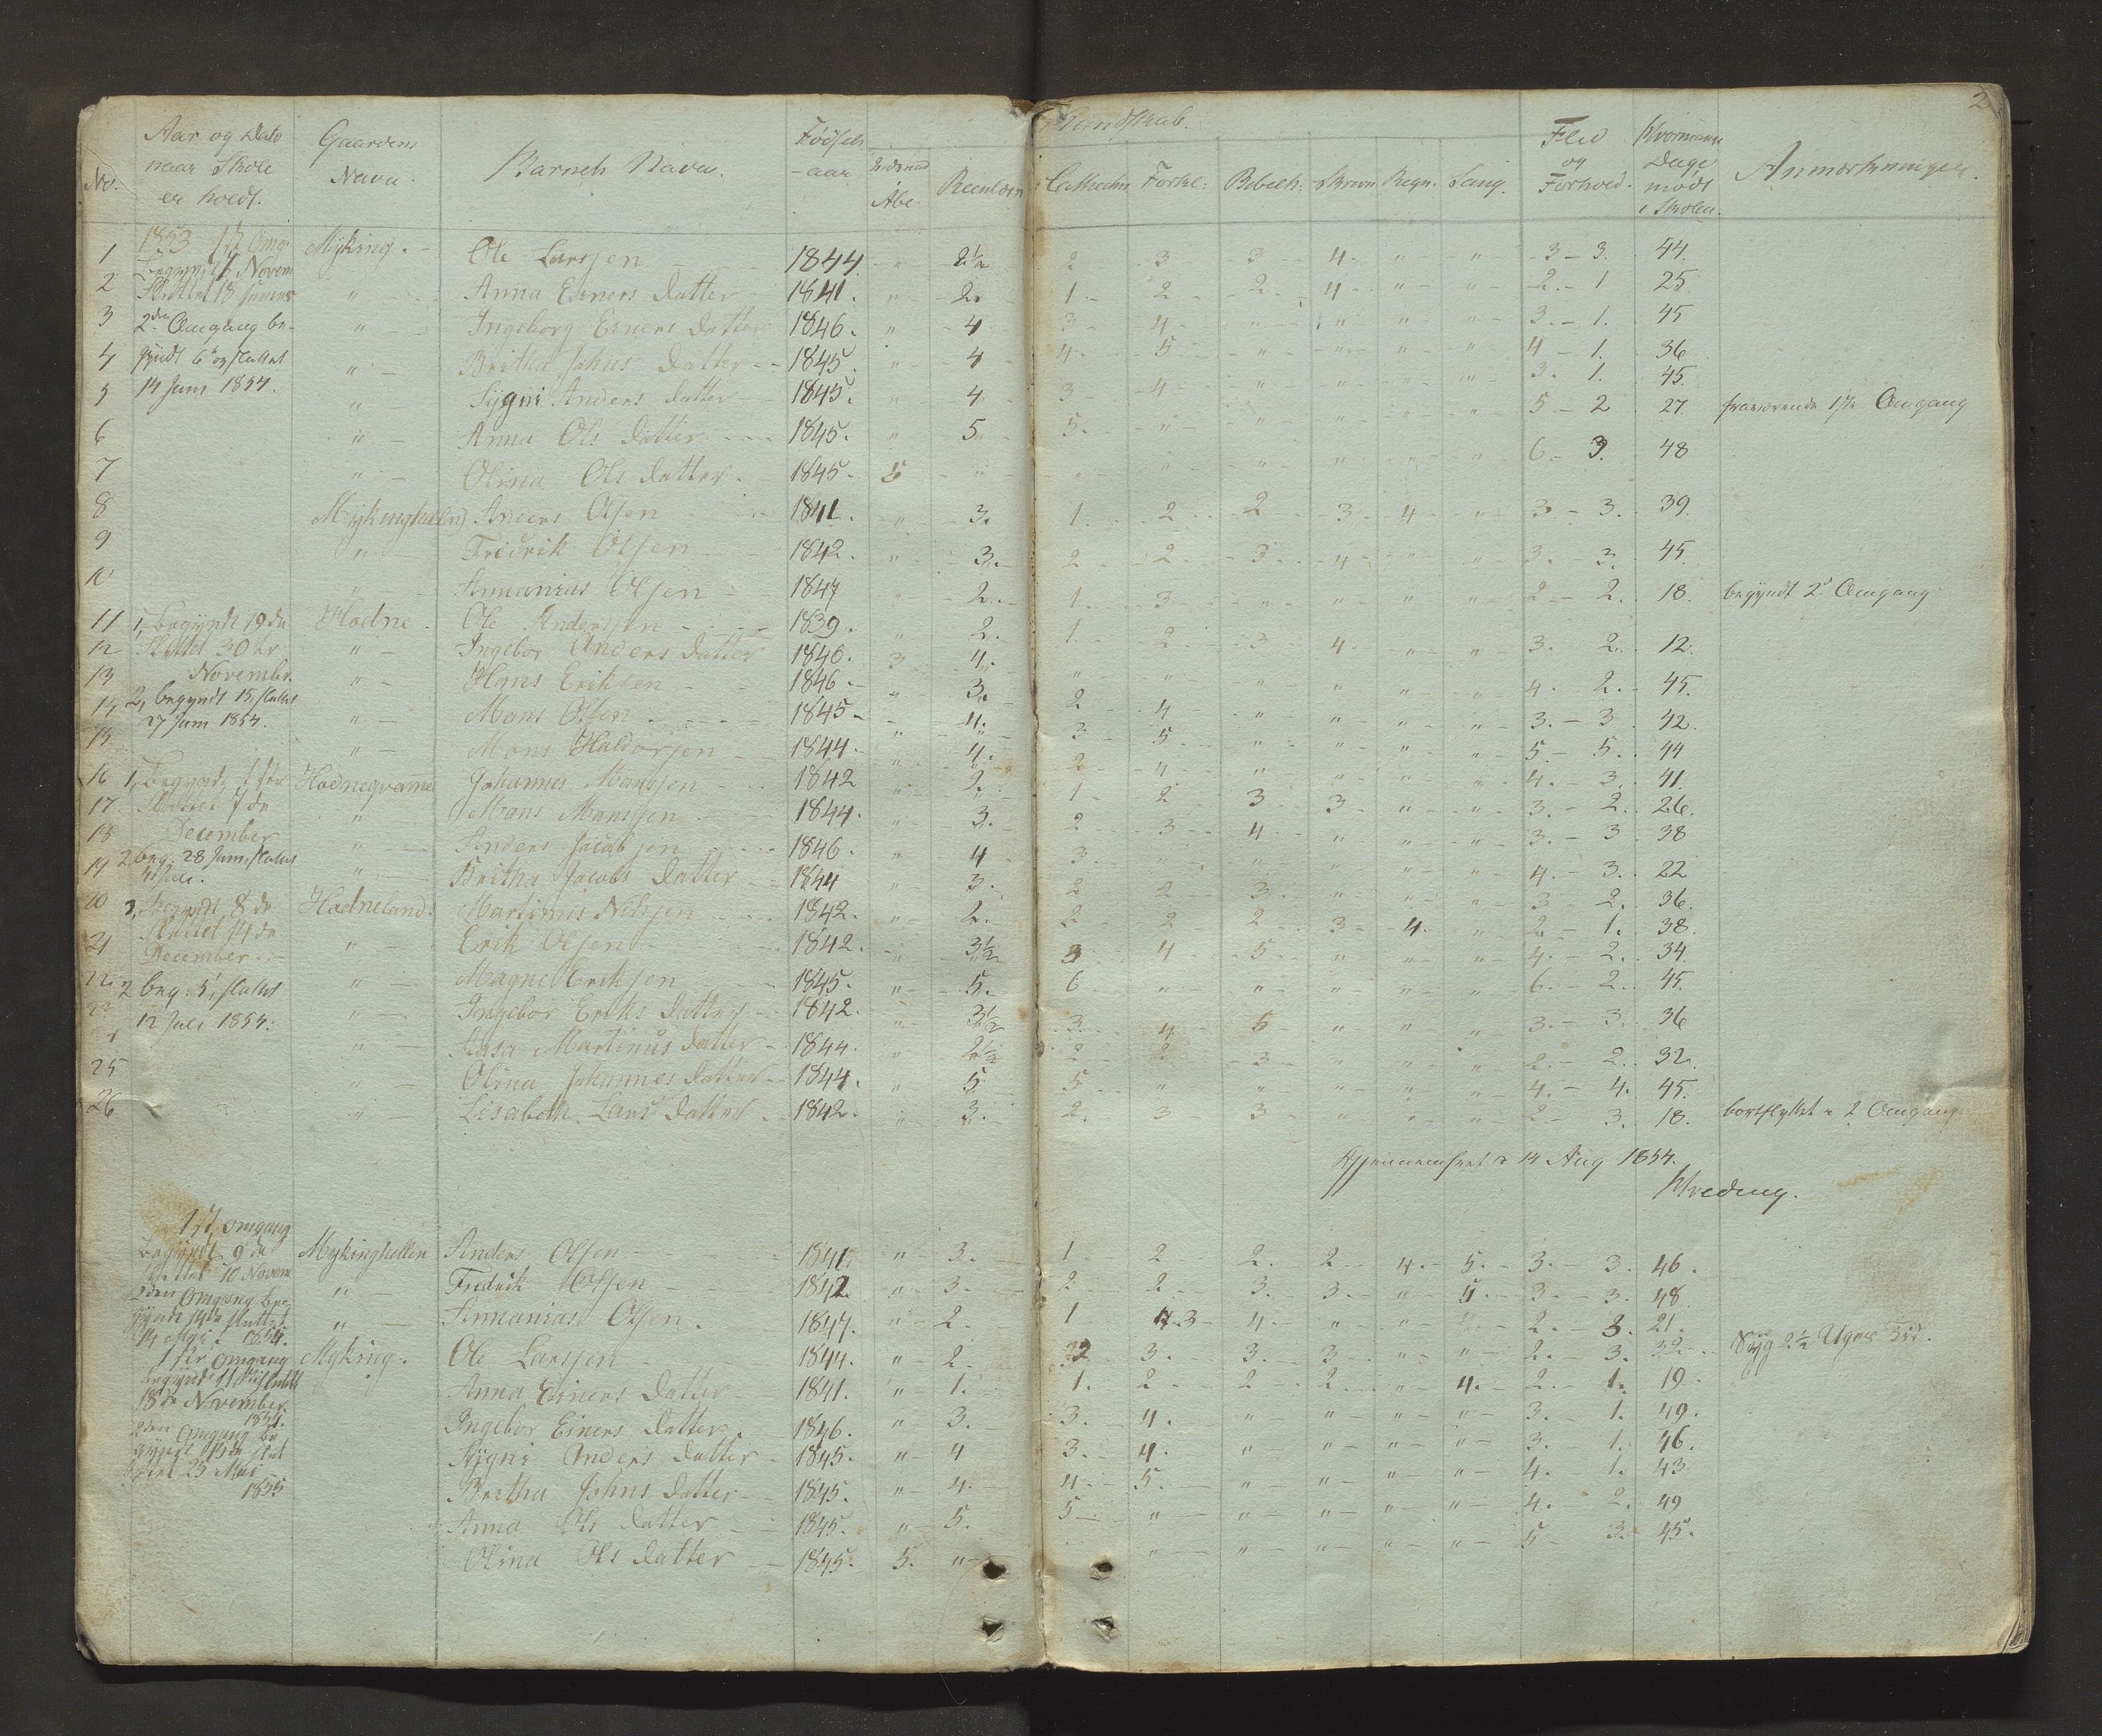 2
No. | Aar og Dato naar Skole er holdt. | Gaardens Navn. | Barnets Navn. | Fødsels-aar | Kundskab. Abc | Reenlæsn | Cathechis | Forkl: | Bibelh. | Skrivn. | Regn. | Sang. | Flid og Forhold. | Hvormange Dage mødt i Skolen. | Anmærkninger.
1 | 1853 1ste Omg. | Myking. | Ole Larssen | 1844. | " | 2½ | 2 | 3 | 3 | 4. | " | " | 3 - 3. | 44.
2 | begyndt Novem Sluttet 18 | " | Anna Einers Datter | 1841. | " | 2. | 1. | 2 | 2 | 4 | " | " | 2. - 1 | 25.
3 | 2den Omgang be- | " | Ingeborg Einers Datter | 1846. | " | 4 | 3 | 4. | " | " | " | " | 3. - 1. | 45
4 | gyndt 6 og sluttet | " | Britha Johns Datter | 1845. | " | 4 | 4. | 5 | " | " | " | " | 4 - 1. | 36
5 | 14 Juni 1854. | " | Sygni Anders Datter | 1845. | " | 4. | 3 | 4 | " | " | " | " | 3. 1. | 45.
6 | " | Anna Ols Datter | 1845. | " | 5. | 5. | " | " | " | " | " | 5 - 2 | 27 | fraværende 1ste Omgang
7 | " | Olina Ols Datter | 1845. | 5 | " | " | " | " | " | " | " | 6. - 3. | 48
8 | Mykinghellen | Anders Olsen | 1841. | " | 3. | 1. | 2 | 2 | 3 | 4 | " | 3 - 3. | 39.
9 | " | Fredrik Olsen | 1842. | " | 3. | 2 | 2 | 3 | 4 | " | " | 3. - 3. | 45.
10 | " | Annanias Olsen | 1847 | " | 2. | 1. | 3 | " | " | " | " | 2 - 2. | 18. | begyndt 2d Omgang
11 | 1, begyndt 19de | Hodne. | Ole Anderssen | 1839. | " | 2. | 1. | 2 | 3 | 4. | " | " | 3. 2. | 12.
12 | Sluttet 30te | " | Ingebor Anders Datter | 1846. | 3 | 4. | " | " | " | " | " | " | 4. 2. | 45.
13 | November | " | Hans Eriksen | 1846. | " | 3. | 2 | 4 | " | " | " | " | 3. - 3 | 42.
14 | 2, begyndt 15, sluttet 27 Juni 1854. | " | Mons Olsen | 1845 | " | 4. | 3 | 5 | " | " | " | " | 5. - 5. | 44
15 | " | Mons Haldorsen | 1844. | " | 4. | 2 | 4 | " | " | " | " | 4. - 3. | 41.
16 | 1, begyndt 1ste | Hodneqværne | Johannes Monssen | 1842 | " | 2. | 1 | 2 | 3 | 3 | " | " | 3. - 2. | 26.
17 | Sluttet 7de | " | Mons Monssen | 1844. | " | 3. | 2 | 3 | 4. | " | " | " | 3. - 3 | 38
18 | December | " | Anders Jacobsen | 1846. | " | 4 | 3. | " | " | " | " | " | 4. - 3. | 22
19 | 2, beg: 28 Juni, sluttet 4 Juli. | " | Britha Jacobs Datter | 1844 | " | 3. | 2 | 2 | 3. | " | " | " | 3 - 2. | 36.
20 | 3, begyndt 8de | Hodneland. | Martinus Nilssen | 1842. | " | 2. | 2 | 2 | 2 | 3. | 4. | " | 2 - 1. | 38.
21 | Sluttet 14de December. | " | Erik Olsen | 1842. | " | 3½ | 3 | 4 | 5 | " | " | " | 4. - 2. | 34.
22 | 2 beg. 5, sluttet | " | Magne Eriksen | 1845. | " | 5. | 6 | " | " | " | " | " | 6. - 2. | 45.
23 | 12 Juli 1854. | " | Ingebor Eriks Datter | 1842. | " | 3½ | 3. | 4 | 5 | " | " | " | 3. - 3. | 36
" | Aasa Martinus Datter | 1844. | " | 2½ | 2 | 2 | 3 | " | " | " | 2. - 2. | 32.
25 | " | Olina Johannes Datter | 1844. | " | 5 | 5 | " | " | " | " | " | 4. - 4. | 45.
26 | " | Lisabeth Lars Datter | 1842. | " | 3. | 2. | 3 | 3 | " | " | " | 2. - 3. | 18. | bortflyttet i 2 Omgang
Gjennemseet d. 14 Aug 1854.
Hveding.
1ste omgang
begyndt 9de | Mykinghellen | Anders Olsen | 1841. | " | 3. | 1. | 2 | 2. | 2 | 4. | 5. | 3. - 3. | 46.
Sluttet 10 Novem | " | Fredrik Olsen | 1842. | " | 3 | 2 | 2 | 3. | 3. | " | 4. | 3 - 3. | 48
2den Omgang be- gyndt 14de sluttet | " | Annanias Olsen. | 1847. | " | 2. | 1 | 3 | 4. | " | " | 2. - 3. | 21.
14 Mai 1855. | Myking. | Ole Larssen | 1844. | " | 2. | 2 | 3. | 3. | 3 | " | " | 2. - 3. | 32 | Syg 2½ Uges Tid.
1ste Omgang begyndt 11te sluttet | Anna Einers Datter | 1841. | " | 1. | 1. | 2 | 2 | 2. | " | 4. | 2. - 1. | 19.
18de November 1854. | Ingebor Einers Datter. | 1846. | " | 3. | 3. | 4. | " | " | " | " | 3. - 1. | 49.
2den Omgang be- | Sygni Anders Datter | 1845. | " | 4 | 3. | 4. | " | " | " | " | 3. 1. | 46.
gyndt 15de slut | Britha Johns Datter | 1845. | " | 4. | 4. | 5. | " | " | " | " | 4. 1. | 43
tet 23 Mai 1855 | Anna Ols Datter | 1845. | " | 5. | 5 | " | " | " | " | " | 4. 2. | 49
Olina Ols Datter | 1845. | 5. | " | " | " | " | " | " | 5 - 3. | 45.